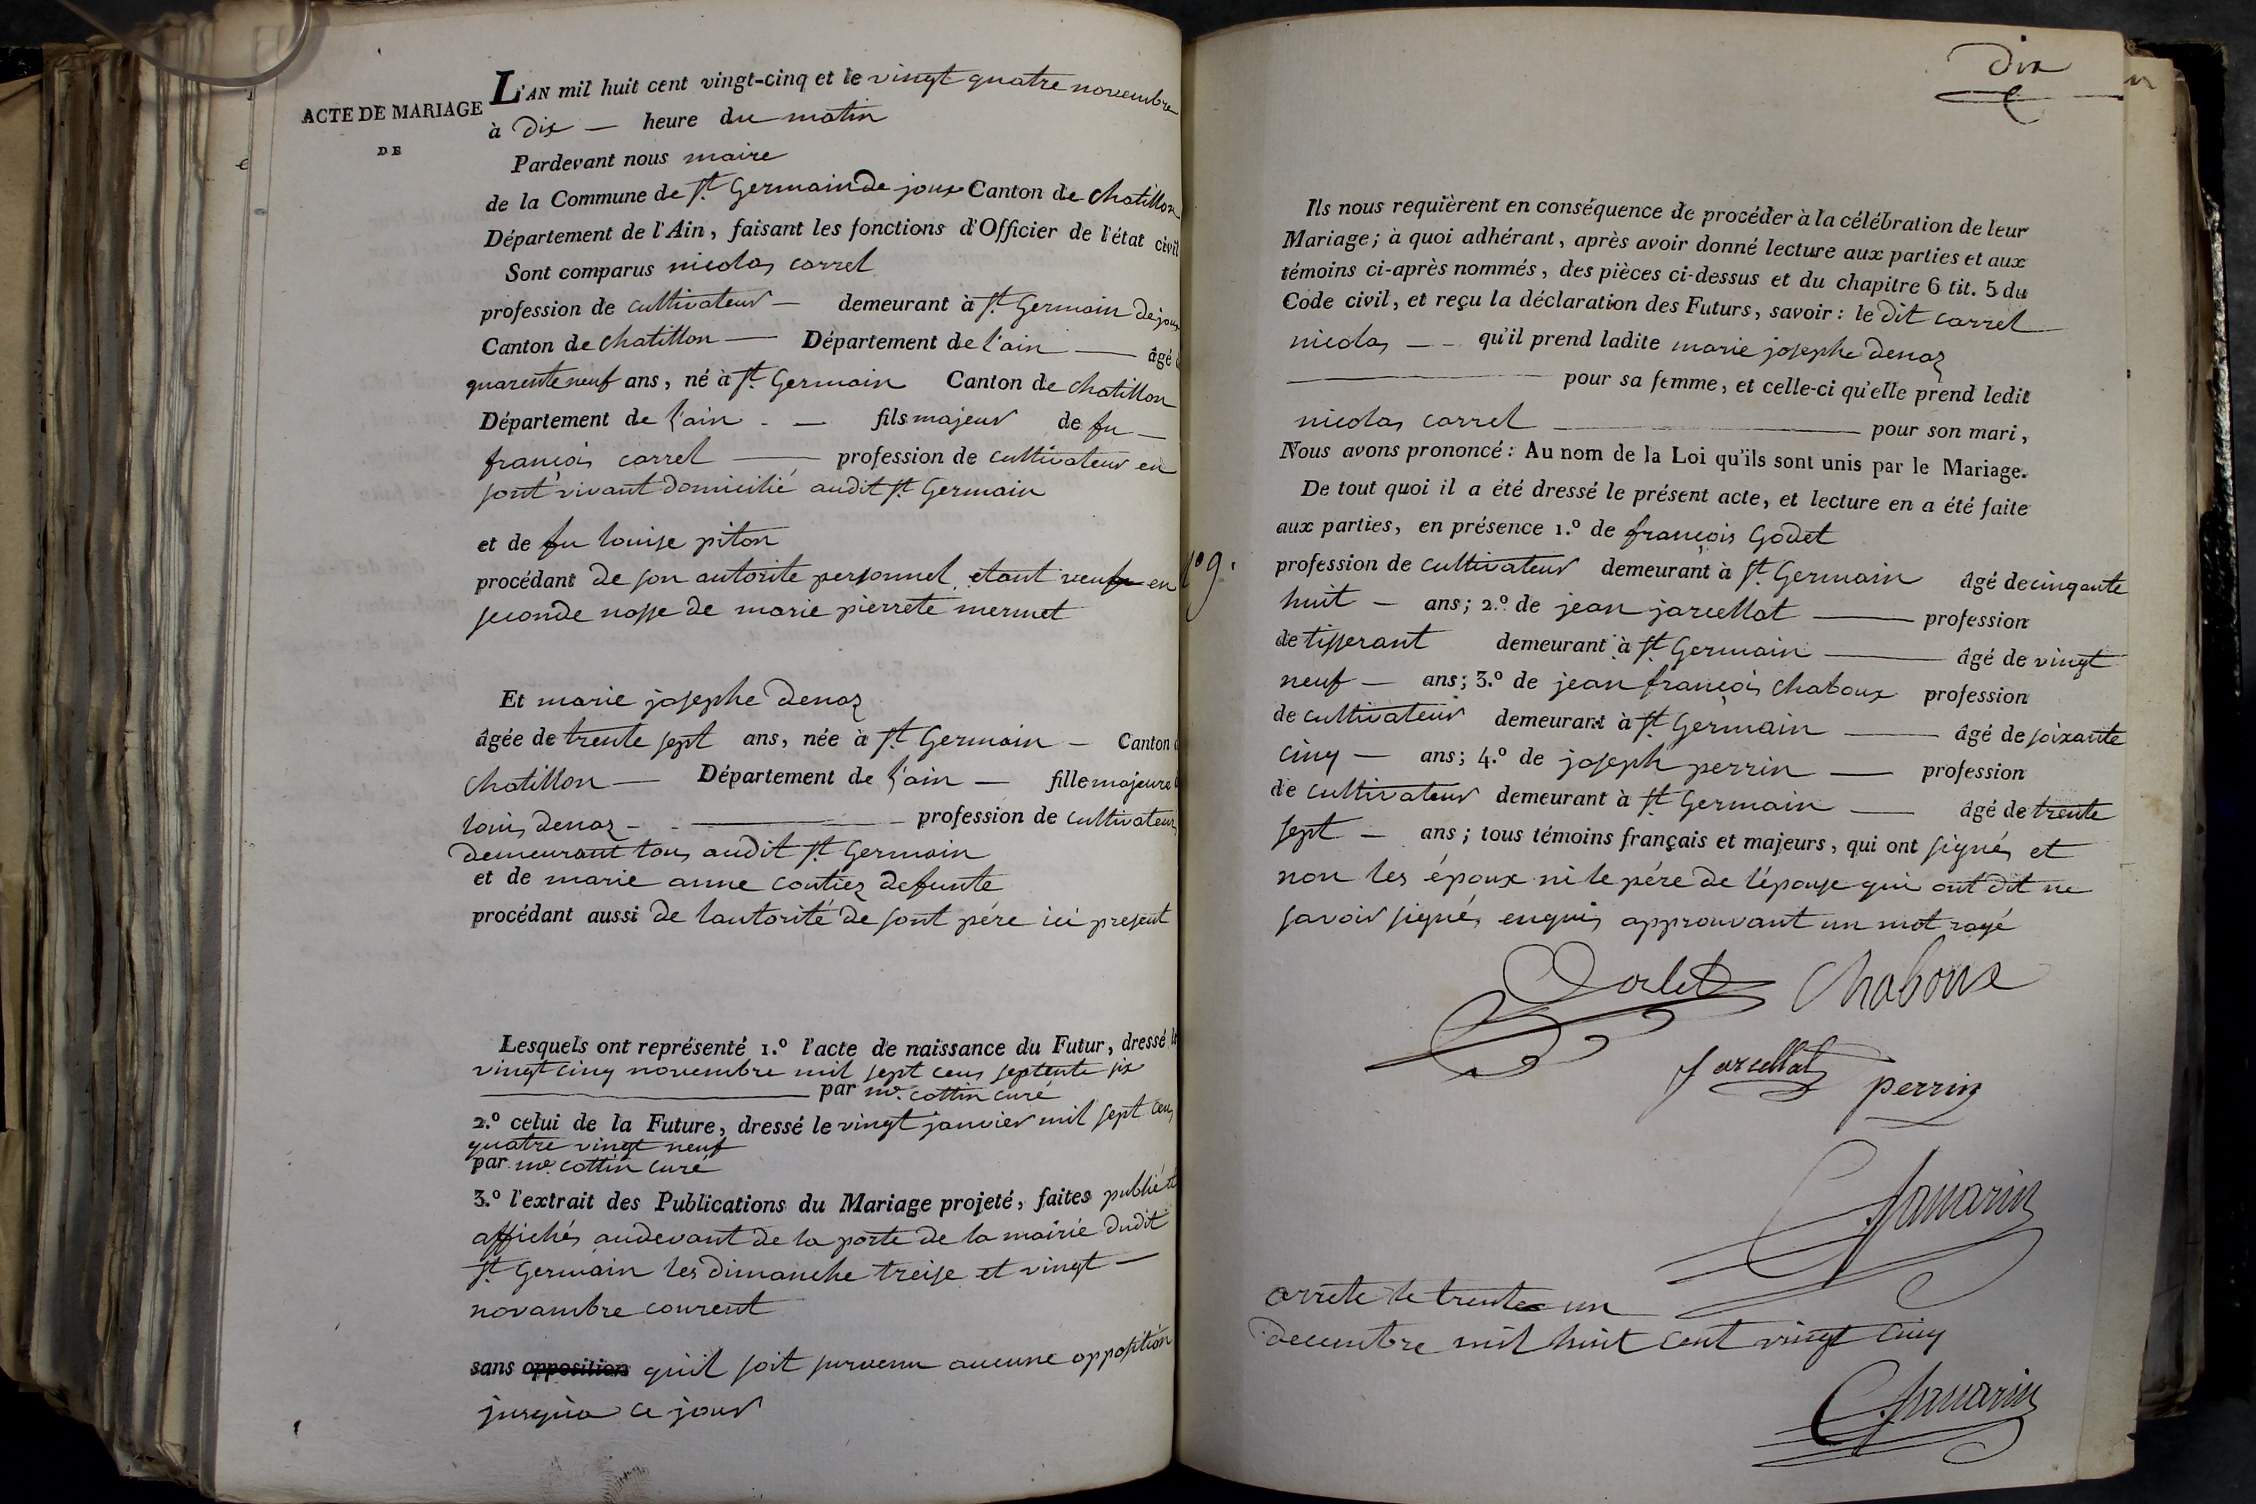 ACTE DE MARIAGE
DE
L'AN mil huit cent vingt-cinq et le vingt quatre novembre
à dix — heure du matin
Pardevant nous maire
de la Commune de St. Germain de joux Canton de chatillon
Département de l'Ain, faisant les fonctions d'Officier de l'état civil
Sont comparus nicolas carrel
profession de cultivateur — demeurant à St. Germain de joux
Canton de chatillon — Département de l'ain — âgé
quarente neuf ans, né à St. Germain Canton de chatillon
Département de l'ain - — fils majeur de fu —
françois carrel — profession de cultivateur en
sont vivant domicilié audit St. Germain
et de fu louise piton
procédant de son autorite personnel etant veuf en
seconde nosse de marie pierrete mermet
Et marie josephe denaz
âgée de trente sept ans, née à St. Germain — Canton
chatillon — Département de l'ain — fille majeure
louis denaz - — profession de cultivateur
demeurant tous audit St. Germain
et de marie anne coutiez defunte
procédant aussi de lautorité de sont pére ici present
Lesquels ont représenté 1.º l'acte de naissance du Futur, dressé le
vingt cinq novembre mil sept cens septente six
— par mr. cottin curé
2.º celui de la Future, dressé le vingt janvier mil sept cens
quatre vingt neuf
par mr. cottin curé
3.º l'extrait des Publications du Mariage projeté, faites publié et
affichés audevant de la porte de la mairie dudit
St. Germain les dimanche treise et vingt —
novambre courent
sans opposition quil soit survenu aucune opposition
jusqua ce jour
dix
Ils nous requièrent en conséquence de procéder à la célébration de leur
Mariage; à quoi adhérant, après avoir donné lecture aux parties et aux
témoins ci-après nommés, des pièces ci-dessus et du chapitre 6 tit. 5 du
Code civil, et reçu la déclaration des Futurs, savoir: le dit carrel
nicolas — - qu'il prend ladite marie josephe denaz
— pour sa femme, et celle-ci qu'elle prend ledit
nicolas carrel — pour son mari,
Nous avons prononcé: Au nom de la Loi qu'ils sont unis par le Mariage.
De tout quoi il a été dressé le présent acte, et lecture en a été faite
aux parties, en présence 1.º de françois Godet
nº 9.
profession de cultivateur demeurant à St. Germain âgé de cinqante
huit — ans; 2.º de jean jarcellat — profession
de tisserant demeurant à St. Germain — âgé de vingt
neuf — ans; 3.º de jean françois chaboux profession
de cultivateur demeurant à St. Germain — âgé de soixante
cinq — ans; 4.º de joseph perrin — profession
de cultivateur demeurant à St. Germain — âgé de trente
sept — ans; tous témoins français et majeurs, qui ont signés et
non les époux ni le pére de l'épouse qui ont dit ne
savoir signés enquis approuvant un mot rayé
Godet Chaboux
jarcellat perrin
arrete le trente un
decembre mil huit cent vingt cinq